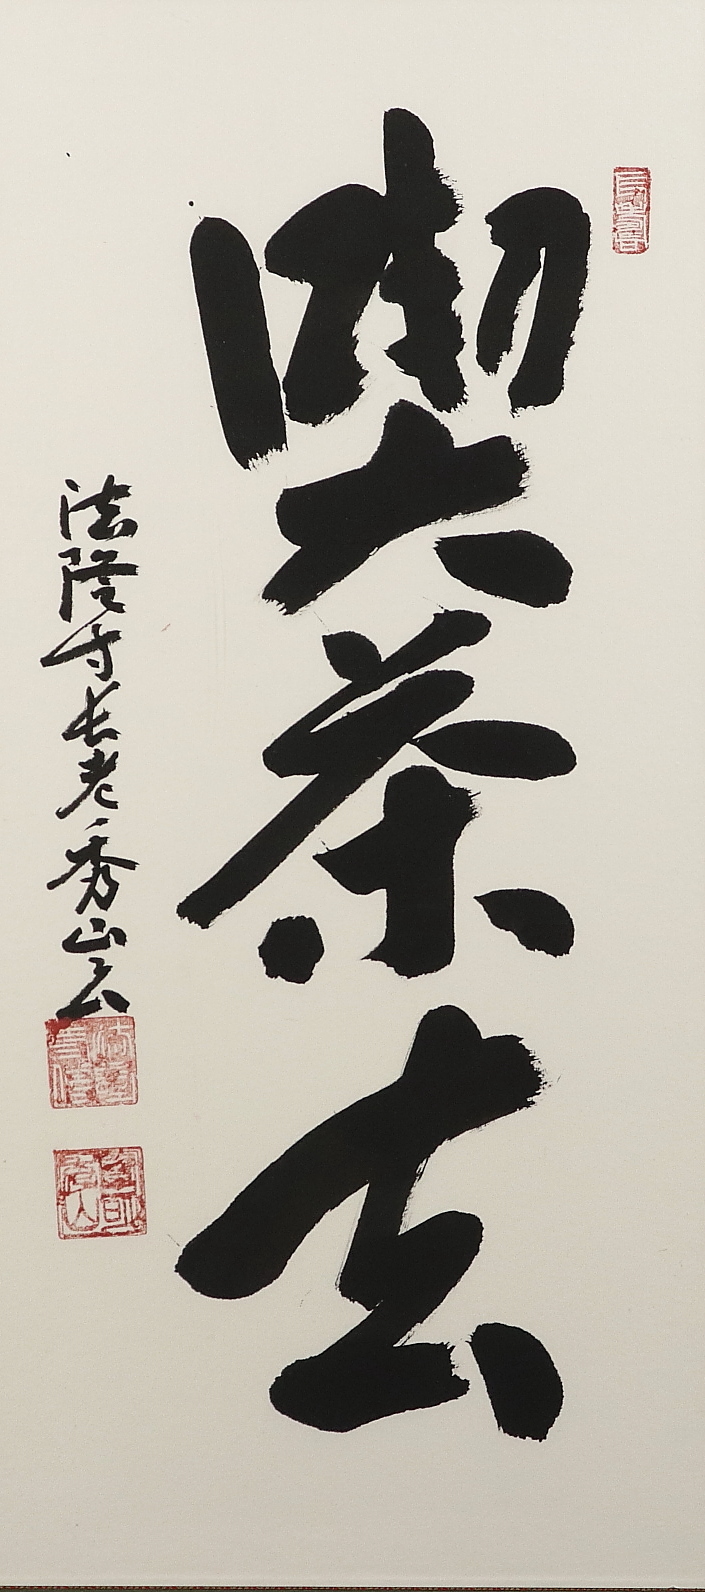 喫茶去
法隆寺長老秀山書